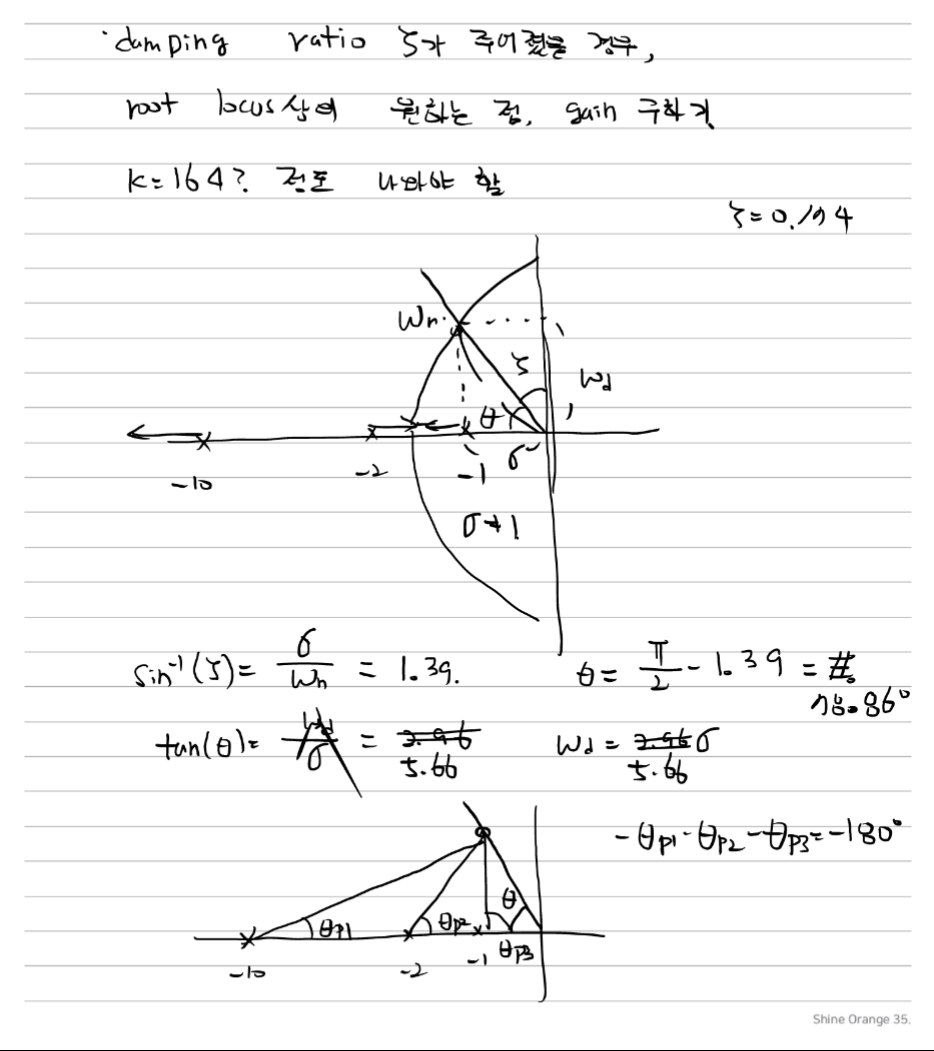 · damping ratio ζ가 주어졌을 경우,
root locus상의 원하는 점, gain 구하기
k=164? 정도 나와야 함
ζ=0.174
Wn
ζ
Wd
θ
-10 -2 -1 σ
σ≠1
sin⁻¹(ζ)= σ/Wn = 1.39. θ= π/2 - 1.39 = #.
78.86°
tan(θ)= Wd/σ = 3.96 Wd = 3.96 σ
5.66 5.66
-θp1-θp2-θp3=-180°
θ
θp1 θp2 θp3
-10 -2 -1
Shine Orange 35.